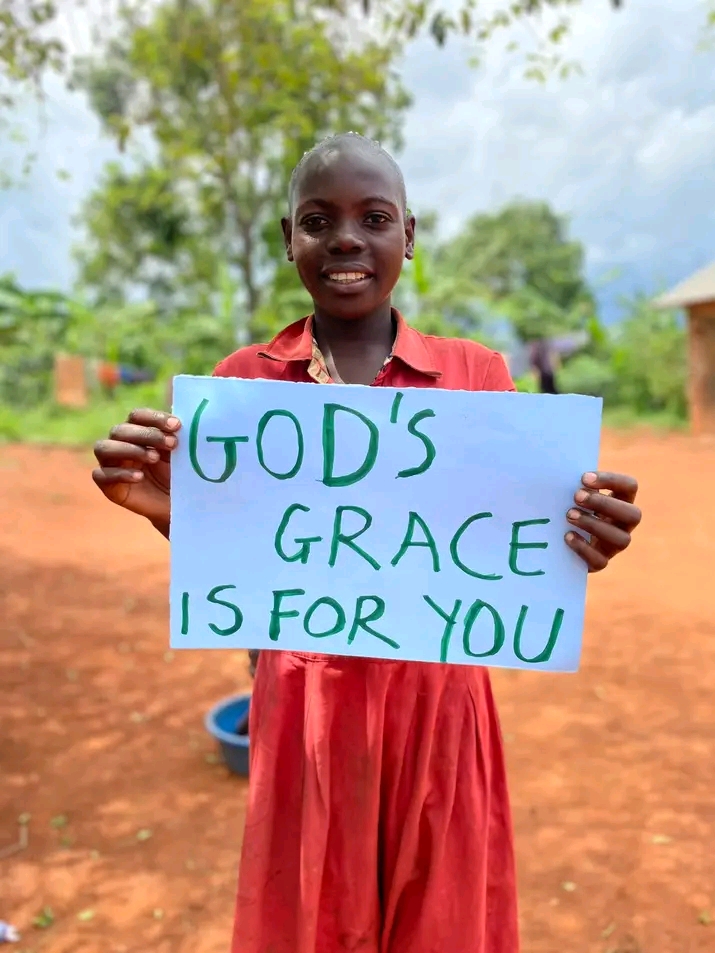 GOD'S
GRACE
IS FOR YOU